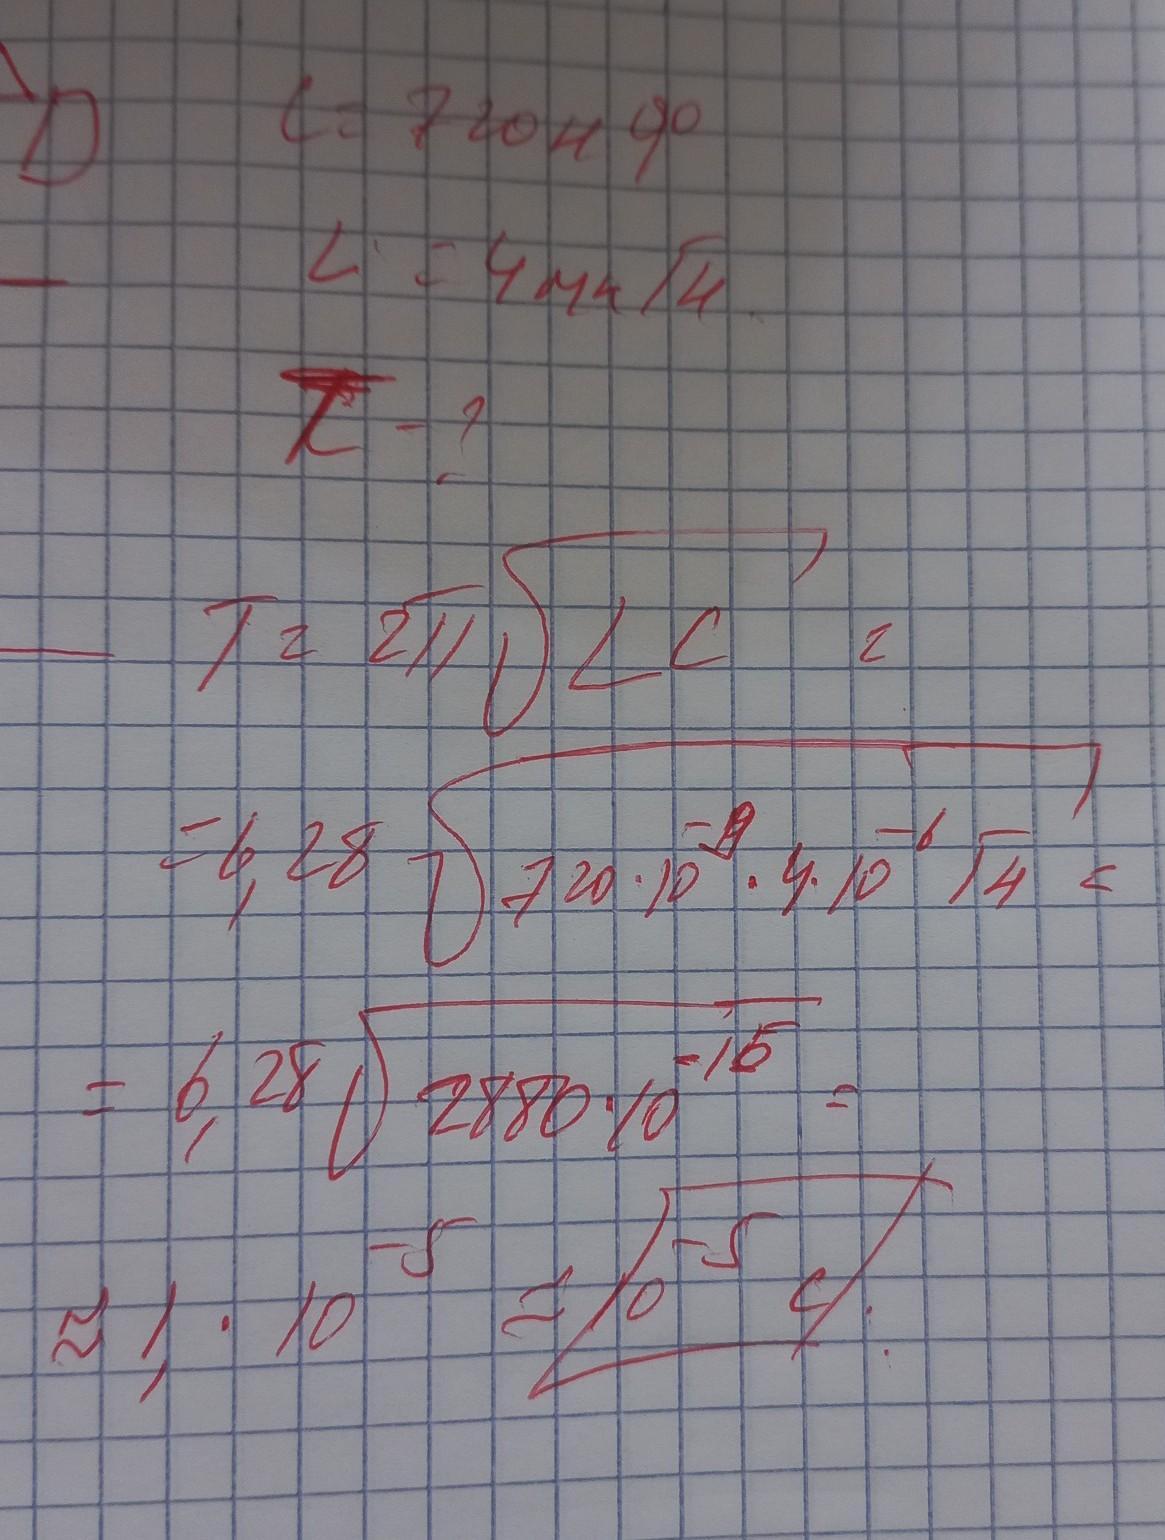 D C = 720 н Ф
L = 4 мк Гн
T - ?
T = 2π√LC =
= 6,28 √720·10⁻⁹·4·10⁻⁶ Гн =
= 6,28 √2880·10⁻¹⁵ =
≈ 1, · 10⁻⁵ = 10⁻⁵ с.